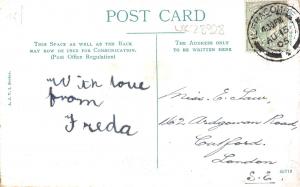 POST CARD
THIS SPACE AS WELL AS THE BACK
MAY NOW BE USED FOR COMMUNICATION.
(Post Office Regulation)
THE ADDRESS ONLY
TO BE WRITTEN HERE
With love
from
Freda
Miss. E. Law,
162. Ardgowan Road,
Catford.
London
S.E.